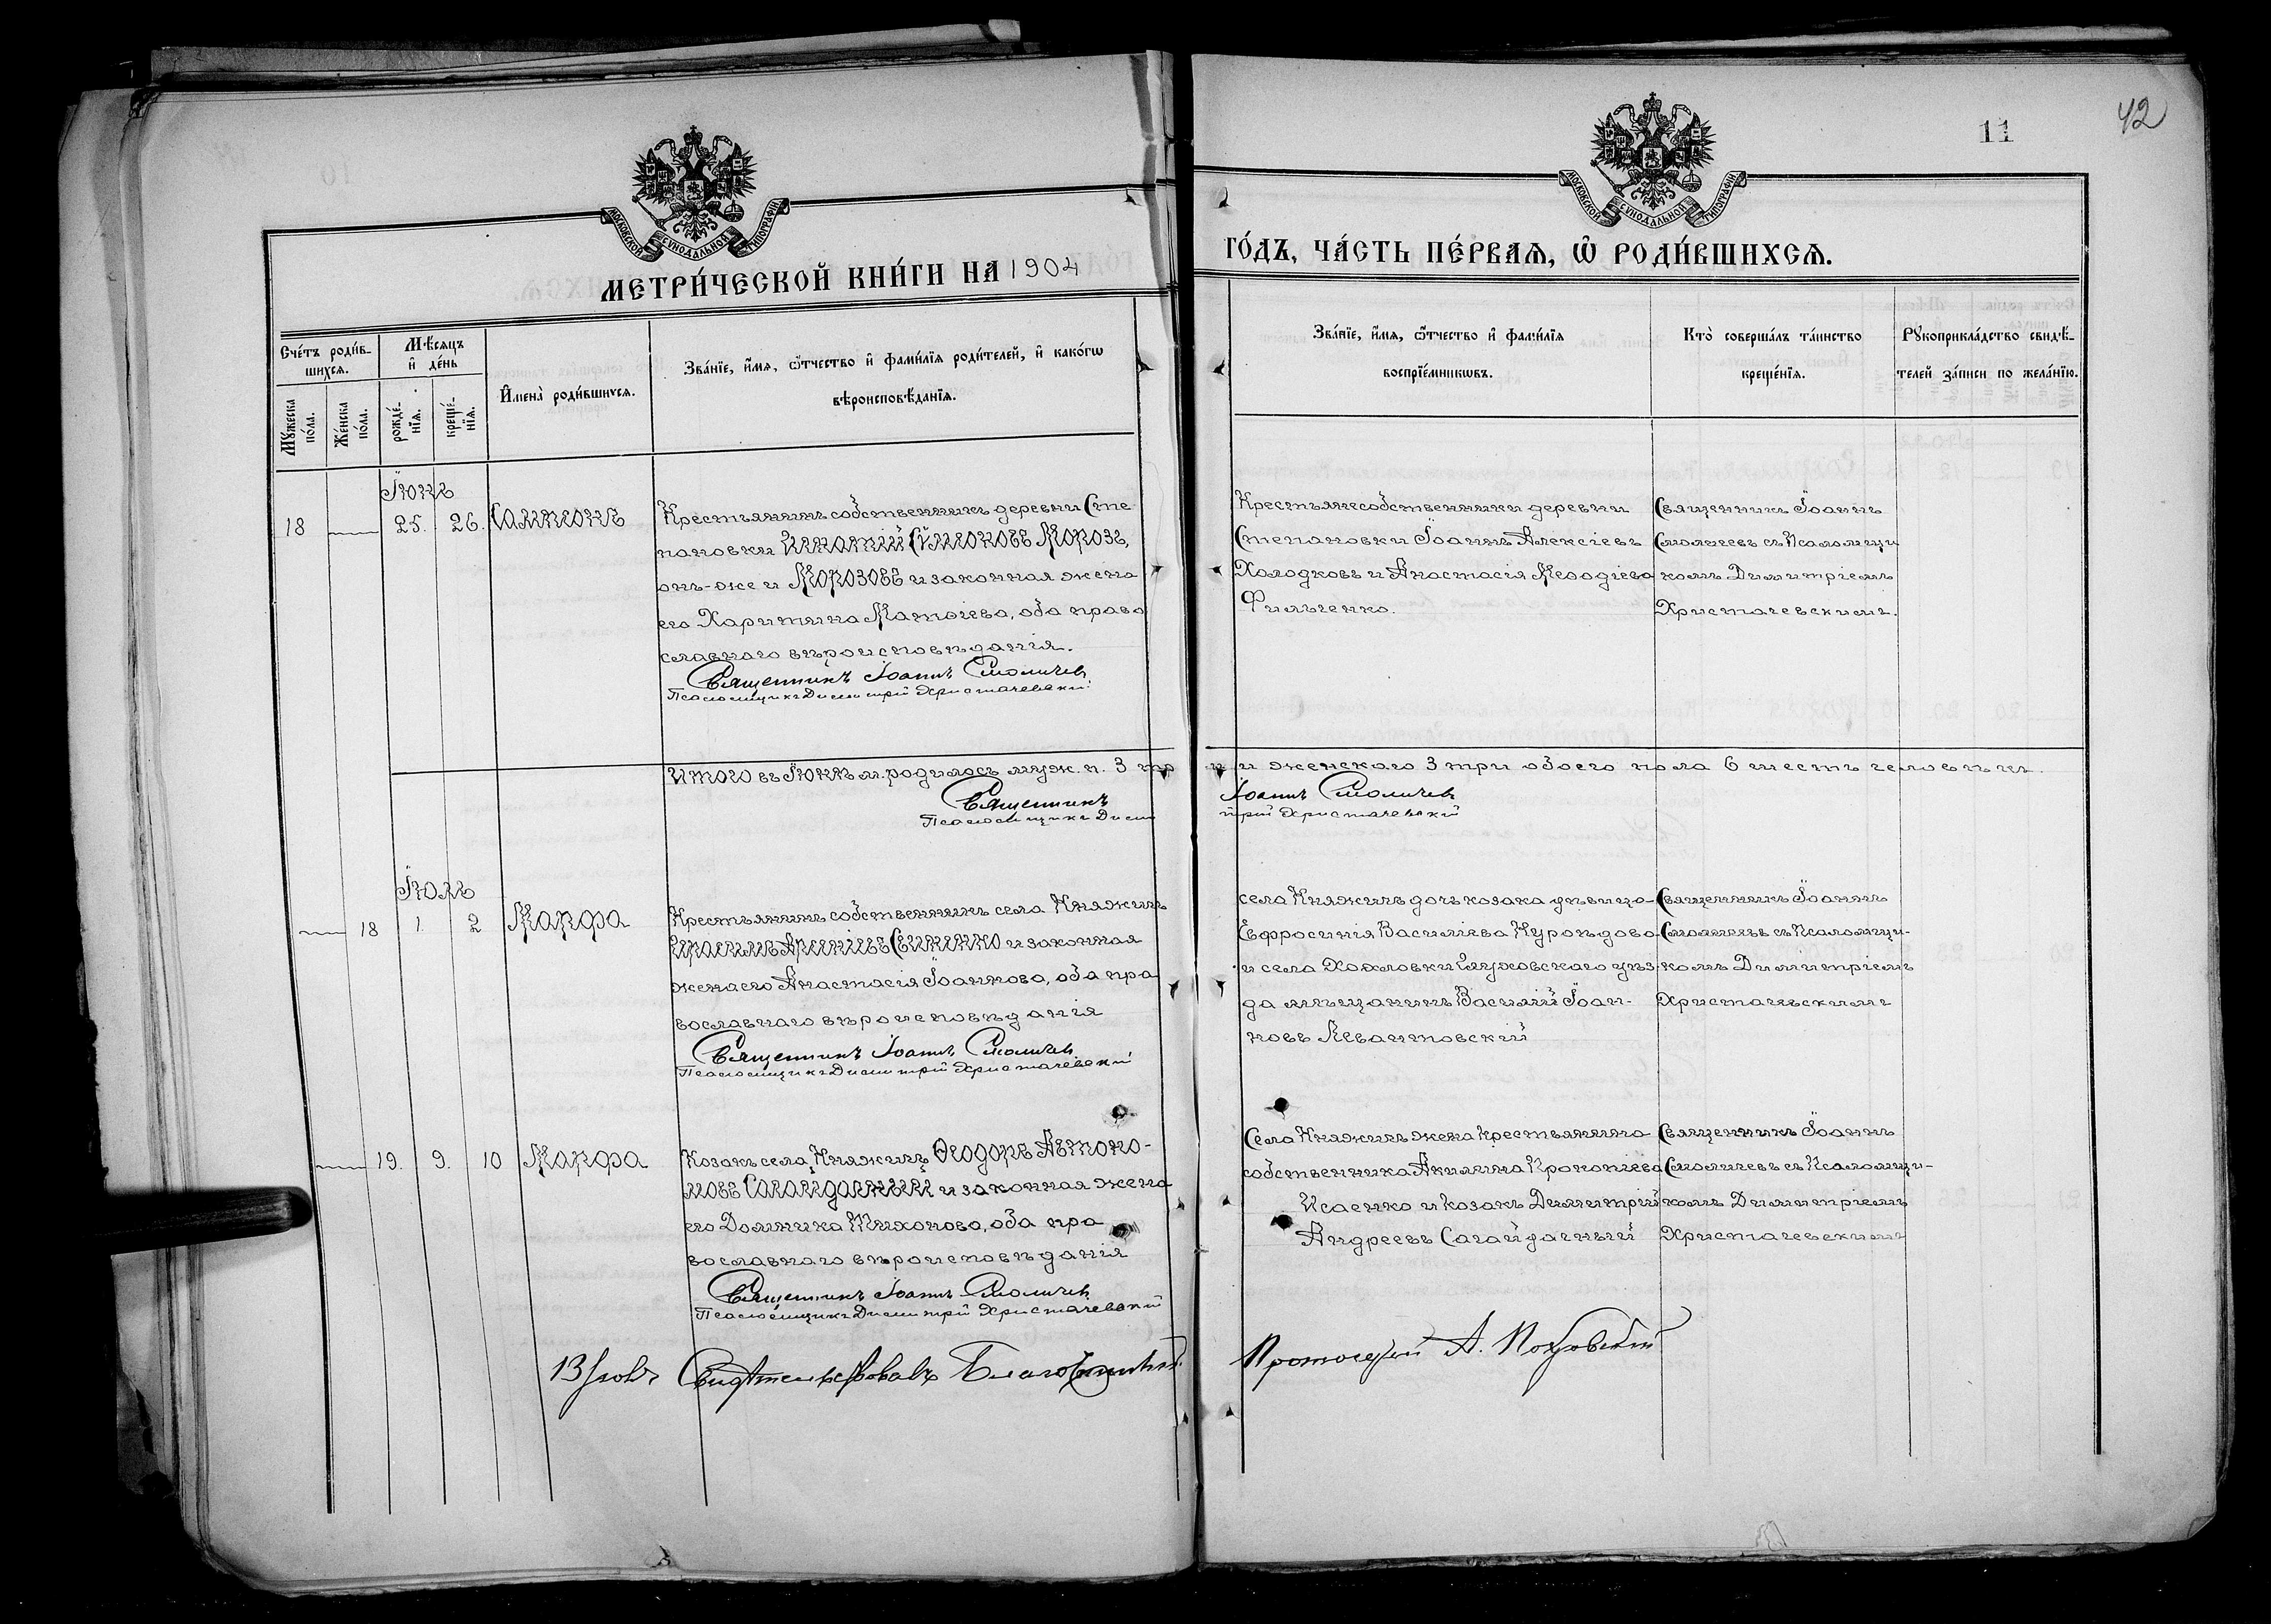 42
11
МОСКОВСКОЙ СѴНОДАЛЬНОЙ ТИПОГРАФІИ
МОСКОВСКОЙ СѴНОДАЛЬНОЙ ТИПОГРАФІИ
МЕТРИ́ЧЕСКОЙ КНИ́ГИ НА 1904
ГО́ДЪ, ЧА́СТЬ ПЕ́РВАѦ, Ѽ РОДИ́ВШИХСѦ.
Сче́тъ роди́в-
шихсѧ.
Мꙋ́жеска
по́ла.
Же́нска
по́ла.
Мѣ́сѧцъ
и҆ де́нь
рожде́-
нїѧ.
креще́-
нїѧ.
И҆мена̀ роди́вшихсѧ.
Зва́нїе, и҆́мѧ, ѻ҆́тчество и҆ фами́лїѧ роди́телей, и҆ како́гѡ
вѣроисповѣ́данїѧ.
Зва́нїе, и҆́мѧ, ѻ҆́тчество и҆ фами́лїѧ
воспрїе́мникѡвъ.
Кто̀ соверша́лъ та́инство
креще́нїѧ.
Рꙋкоприкла́дство свидѣ́-
телей за́писи по жела́нїю.
Іюнь
18
25.
26.
Сампсонъ
Крестьянинъ собственникъ деревни Сте
пановки Игнатій Сѵмеоновъ Морозъ,
онъ-же и Морозовъ и законная жена
его Харитина Матѳіева, оба право
славнаго вѣроисповѣданія.
Священникъ Іоаннъ Смоличевъ
Псаломщикъ Димитрій Христачевскій
Крестьяне собственники деревни
Степановки Іоаннъ Алексіевъ
Холодковъ и Анастасія Меѳодіева
Фильченко.
Священникъ Іоаннъ
Смоличевъ съ Псаломщи
комъ Димитріемъ
Христачевскимъ.
Итого въ Іюнѣ м. родилось муж. п. 3 три и женскаго 3 три обоего пола 6 шесть человѣкъ.
Священникъ Іоаннъ Смоличевъ
Псаломщикъ Димитрій Христачевскій
Іюль
18
1.
2
Марфа
Крестьянинъ собственникъ села Княжичъ
Герасимъ Арсеніевъ Свиненко и законная
жена его Анастасія Іоаннова, оба пра
вославнаго вѣроисповѣданія
Священникъ Іоаннъ Смоличевъ
Псаломщикъ Димитрій Христачевскій
села Княжичъ дочь козака дѣвица
Ефросинія Василіева
и села Хохловки Глуховскаго уѣз-
да мѣщанинъ Василій Іоан-
новъ Левантовскій
Священникъ Іоаннъ
Смоличевъ съ Псаломщи-
комъ Димитріемъ
Христачевскимъ
19.
9.
10
Марфа
Козакъ села Княжичъ Ѳеодоръ Автоно-
мовъ Сагайдачный и законная жена
его Домника Тихонова, оба пра
вославнаго вѣроисповѣданія
Священникъ Іоаннъ Смоличевъ
Псаломщикъ Димитрій Христачевскій
Села Княжичъ жена крестьянина
собственника Акилина Прокопіева
Исаенко и козакъ Димитрій
Андреевъ Сагайдачный
Священникъ Іоаннъ
Смоличевъ съ Псаломщи-
комъ Димитріемъ
Христачевскимъ
13 Свидѣтельствовалъ Благочинный Протоіерей А. Покровскій